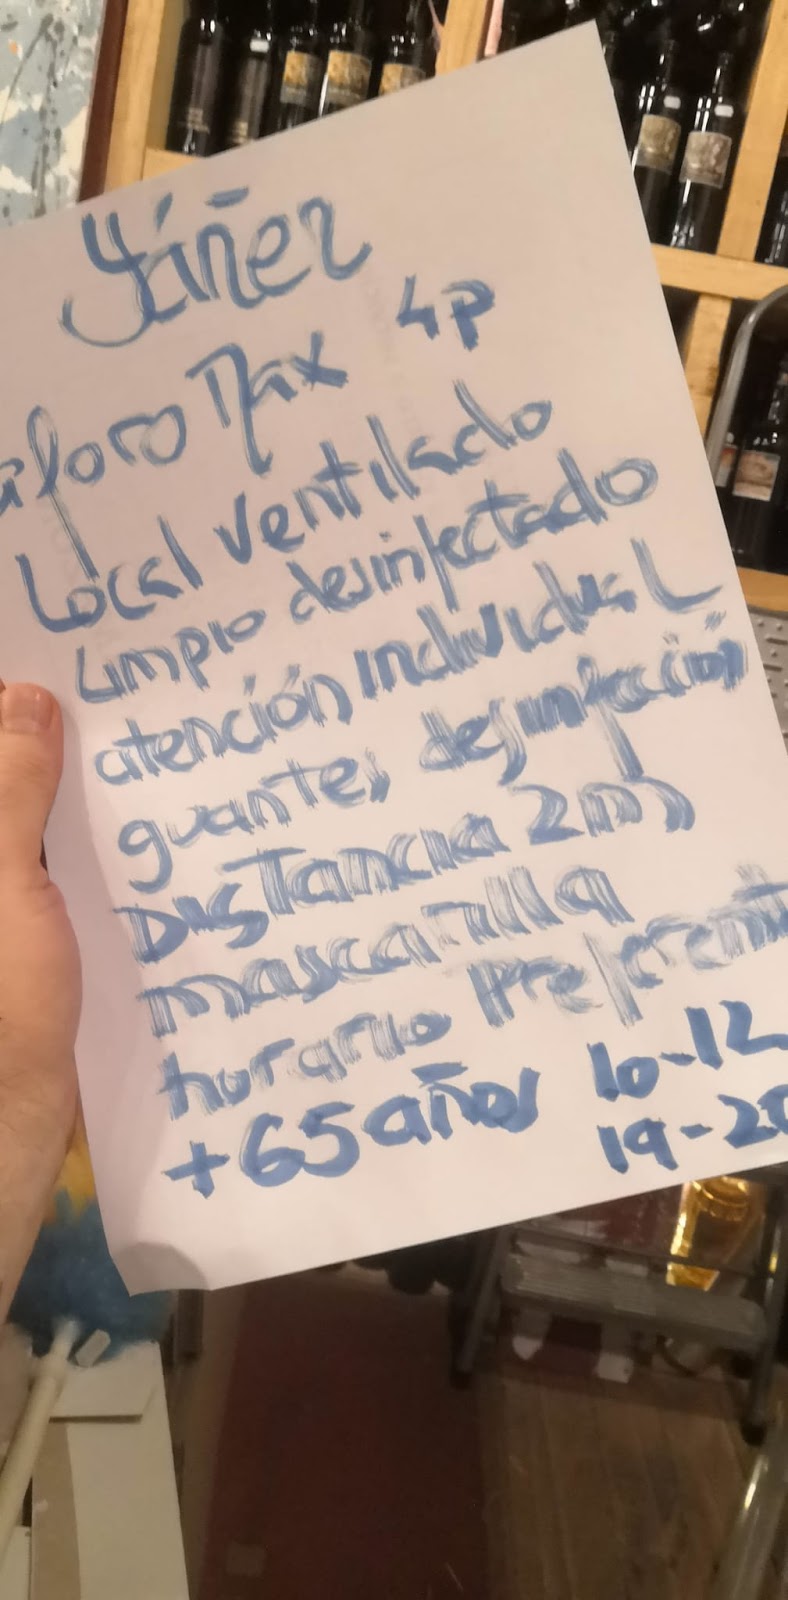 Yáñez
aforo Max 4P
Local ventilado
Limpio desinfectado
atención individual
guantes desinfección
Distancia 2m
mascarilla
horario preferente
+65 años 10-12
19-20